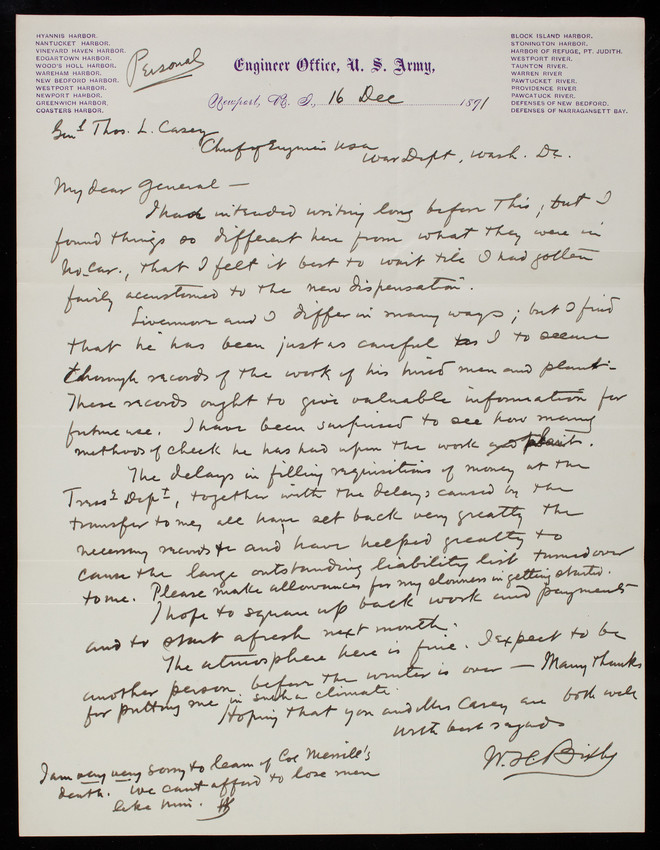 HYANNIS HARBOR.
NANTUCKET HARBOR.
VINEYARD HAVEN HARBOR.
EDGARTOWN HARBOR.
WOOD'S HOLL HARBOR.
WAREHAM HARBOR.
NEW BEDFORD HARBOR.
WESTPORT HARBOR.
NEWPORT HARBOR.
GREENWICH HARBOR.
COASTERS HARBOR.
Personal
Engineer Office, U. S. Army,
Newport, R. I., 16 Dec 1891
BLOCK ISLAND HARBOR.
STONINGTON HARBOR.
HARBOR OF REFUGE, PT. JUDITH.
WESTPORT RIVER.
TAUNTON RIVER.
WARREN RIVER
PAWTUCKET RIVER.
PROVIDENCE RIVER
PAWCATUCK RIVER.
DEFENSES OF NEW BEDFORD.
DEFENSES OF NARRAGANSETT BAY.
Genl Thos. L. Casey
Chief of Engineers USA
War Dept, Wash. DC.
My dear General —
I had intended writing long before this; but I
found things so different here from what they were in
No. Car., that I felt it best to wait till I had gotten
fairly accustomed to the new dispensation.
Livermore and I differ in many ways; but I find
that he has been just as careful as I to secure
thorough records of the work of his hired men and plant.
These records ought to give valuable information for
future use. I have been surprised to see how many
methods of check he has had upon the work
The delays in filling requisitions of money at the
Treasy Dept, together with the delays caused by the
transfer to me, all have set back very greatly the
necessary records &c and have helped greatly to
cause the large outstanding liability list turned over
to me. Please make allowances for my slowness in getting started.
I hope to square up back work and payments
and to start afresh next month.
The atmosphere here is fine. I expect to be
another person before the winter is over — Many thanks
for putting me in such a climate.
Hoping that you and Mrs Casey are both well
With best regards
W. H. Bixby
I am very very sorry to learn of Col Merrill's
death. We cant afford to lose men
like him.